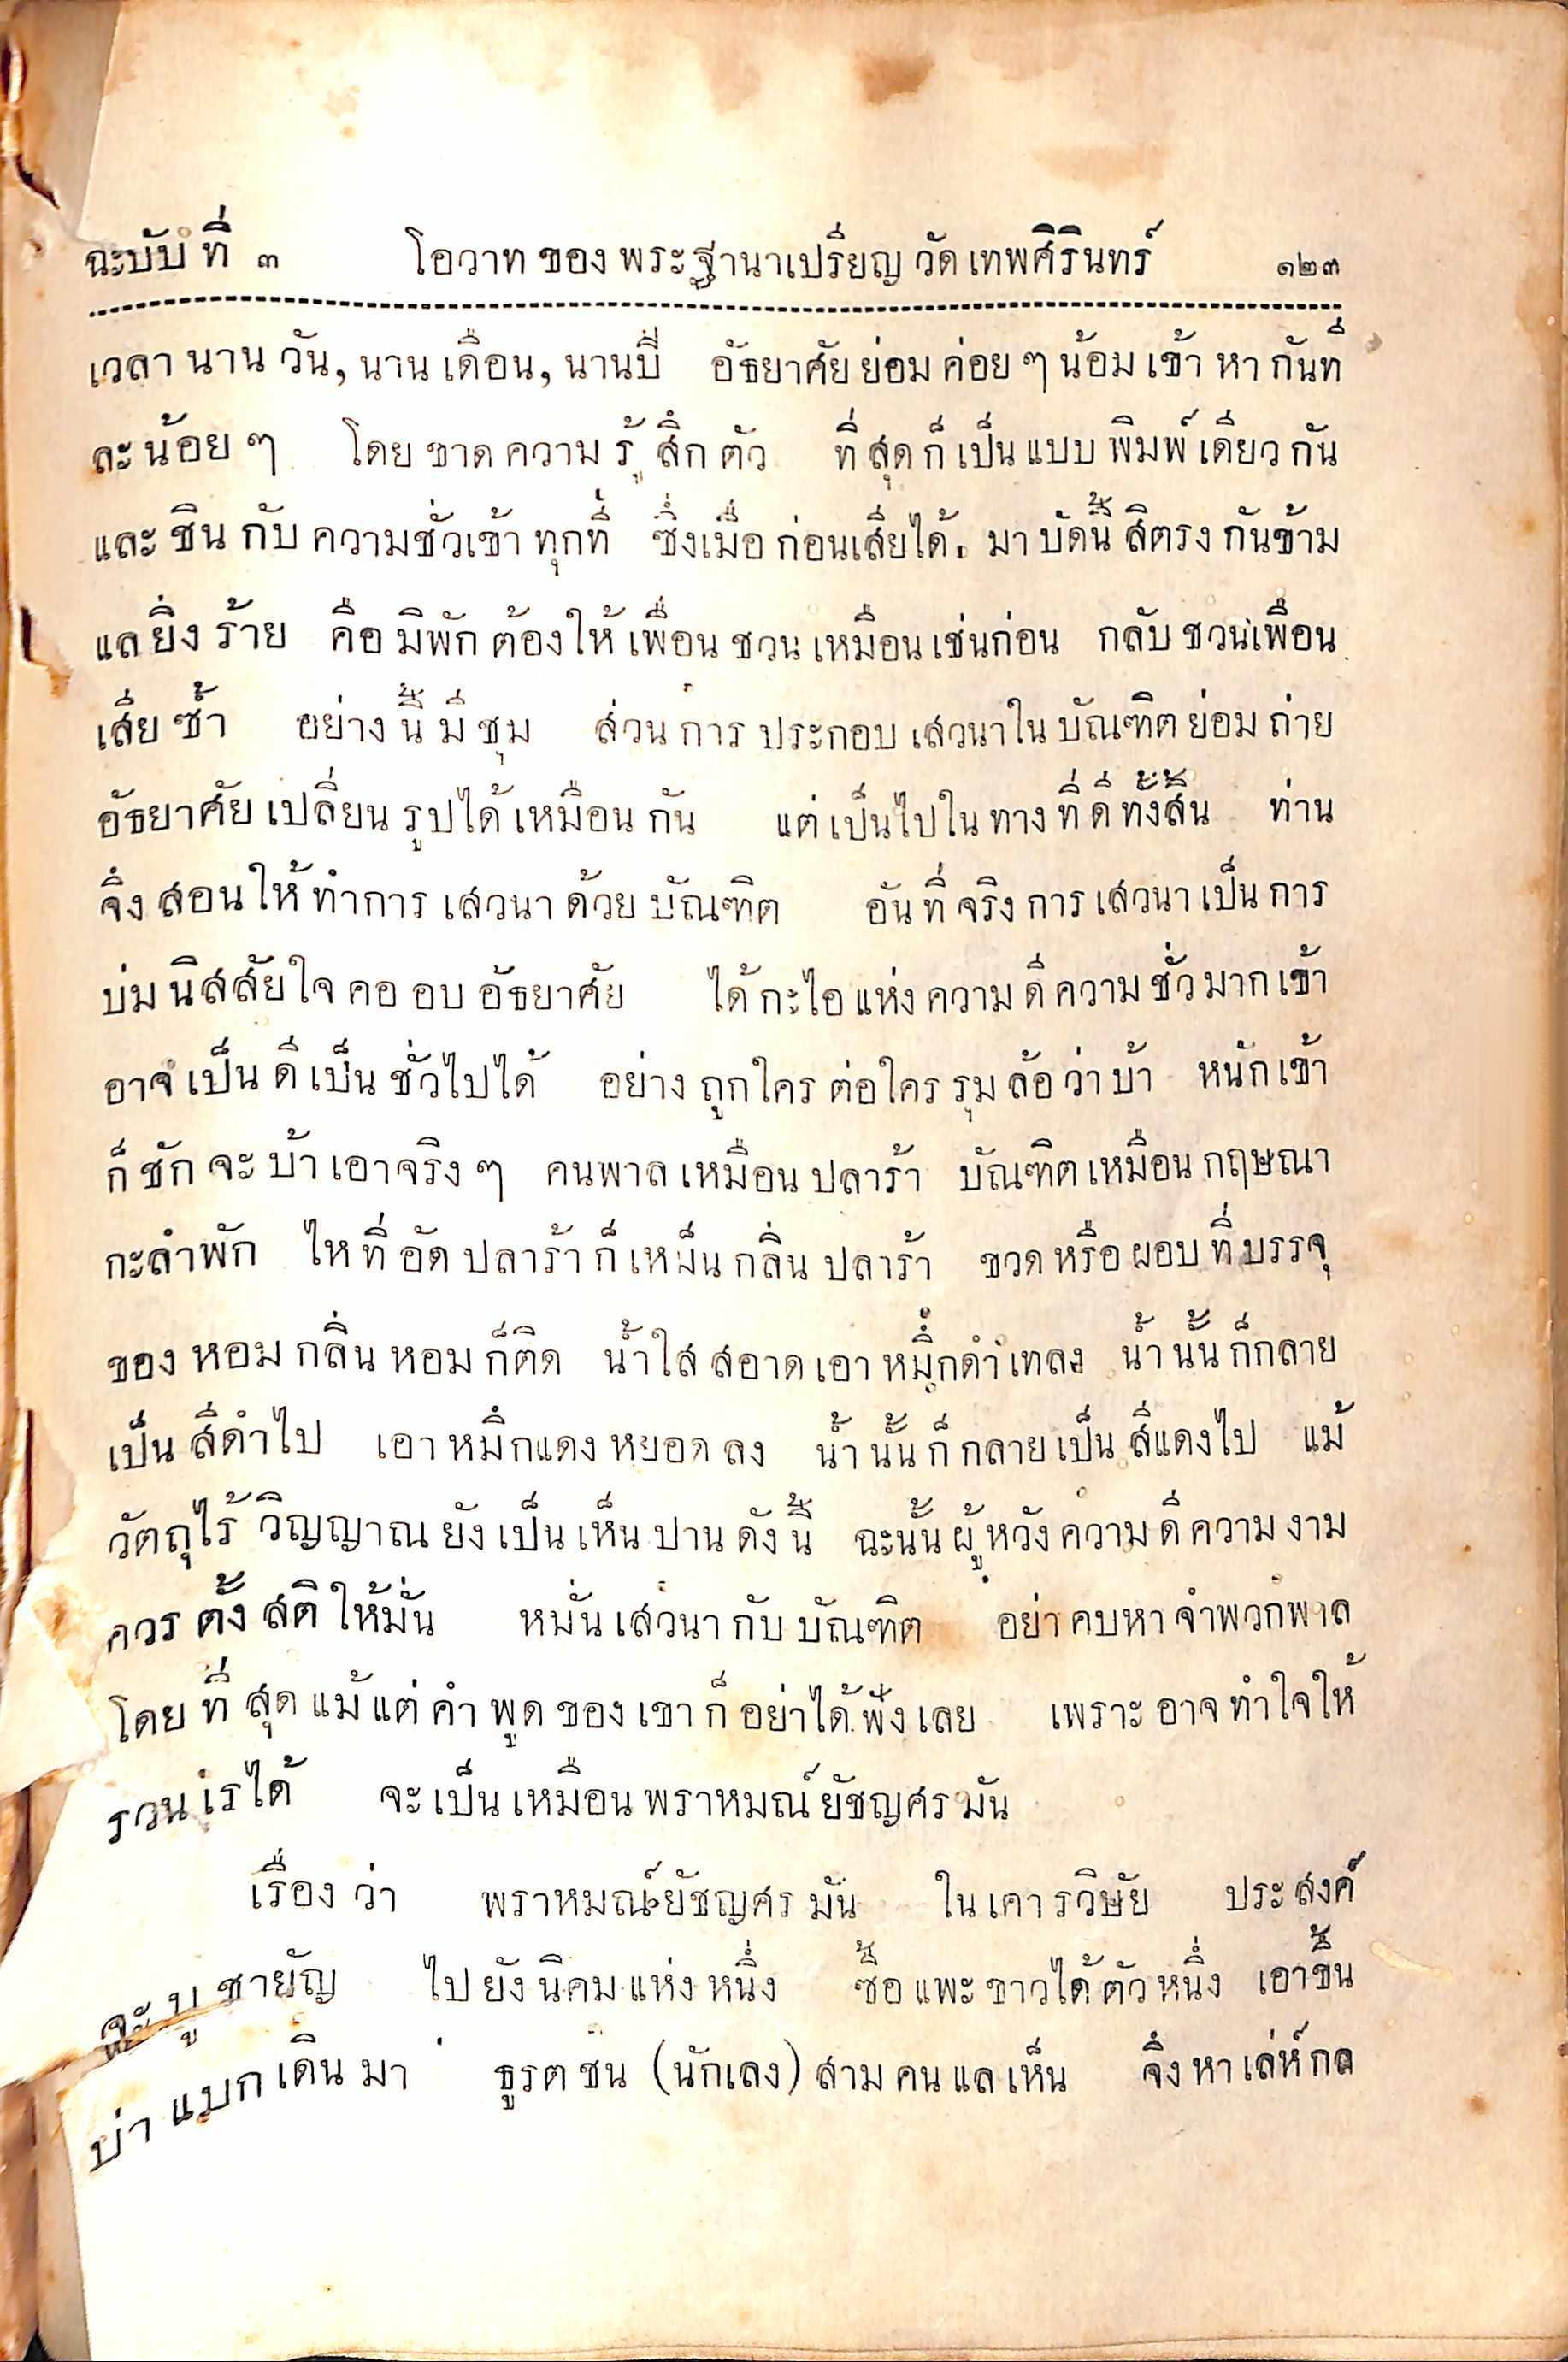 ฉะบับที่ ๓ โอวาทของพระฐานาเปรียญวัดเทพศิรินทร์ ๑๒๓
เวลานานวัน, นานเดือน, นานปี อัธยาศัยย่อมค่อย ๆ น้อมเข้าหากันที
ละน้อย ๆ โดยขาดความรู้สึกตัว ที่สุดก็เป็นแบบพิมพ์เดียวกัน
และชินกับความชั่วเข้าทุกที ซึ่งเมื่อก่อนเสียได้. มาบัดนี้สิตรงกันข้าม
แลยิ่งร้าย คือมิพักต้องให้เพื่อนชวนเหมือนเช่นก่อน กลับชวนเพื่อน
เสียซ้ำ อย่างนี้มีชุม ส่วนการประกอบเสวนาในบัณฑิตย่อมถ่าย
อัธยาศัยเปลี่ยนรูปได้เหมือนกัน แต่เป็นไปในทางที่ดีทั้งสิ้น ท่าน
จึงสอนให้ทำการเสวนาด้วยบัณฑิต อันที่จริงการเสวนาเป็นการ
บ่มนิสสัยใจคออบอัธยาศัย ได้กะไอแห่งความดีความชั่วมากเข้า
อาจเป็นดีเป็นชั่วไปได้ อย่างถูกใครต่อใครรุมล้อว่าบ้า หนักเข้า
ก็ชักจะบ้าเอาจริง ๆ คนพาลเหมือนปลาร้า บัณฑิตเหมือนกฤษณา
กะลำพัก ไหที่อัดปลาร้าก็เหม็นกลิ่นปลาร้า ขวดหรือผอบที่บรรจุ
ของหอมกลิ่นหอมก็ติด น้ำใสสอาดเอาหมึกดำเทลง น้ำนั้นก็กลาย
เป็นสีดำไป เอาหมึกแดงหยอดลง น้ำนั้นก็กลายเป็นสีแดงไป แม้
วัตถุไร้วิญญาณยังเป็นเห็นปานดังนี้ ฉะนั้นผู้หวังความดีความงาม
ควรตั้งสติให้มั่น หมั่นเสวนากับบัณฑิต อย่าคบหาจำพวกพาล
โดยที่สุดแม้แต่คำพูดของเขาก็อย่าได้ฟังเลย เพราะอาจทำใจให้
รวนเรได้ จะเป็นเหมือนพราหมณ์ยัชญศรมัน
เรื่องว่า พราหมณ์ยัชญศรมัน ในเคารวิษัย ประสงค์
จะบูชายัญ ไปยังนิคมแห่งหนึ่ง ซื้อแพะขาวได้ตัวหนึ่ง เอาขึ้น
บ่าแบกเดินมา ธูรตชน (นักเลง) สามคนแลเห็น จึงหาเล่ห์กล